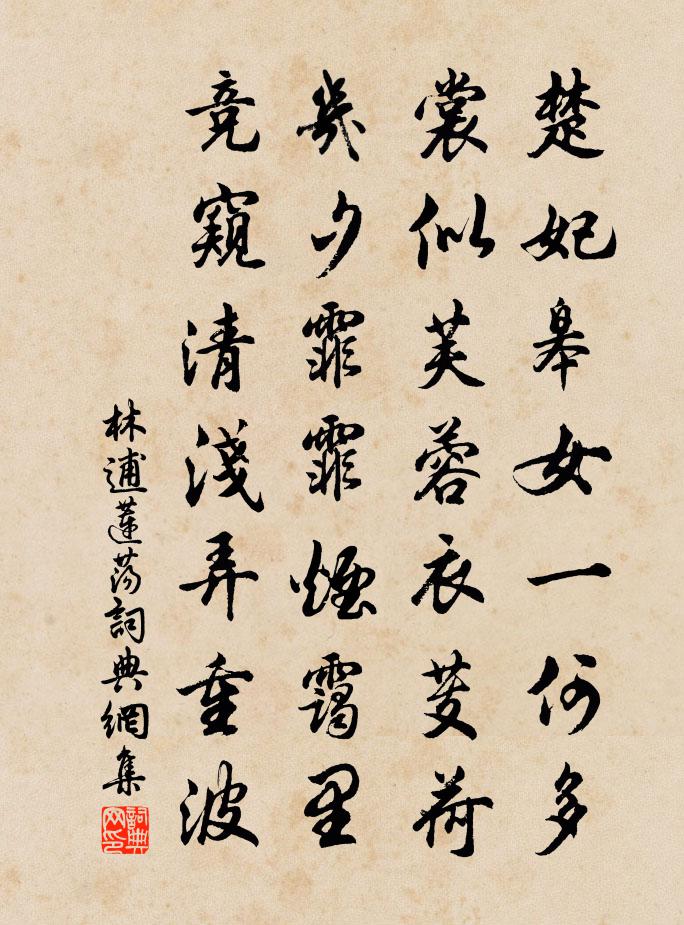 楚妃皋女一何多
裳似芙蓉衣芰荷
幾夕霏霏煙靄里
竞窺清淺弄重波
林逋蓮蕩詞典網集
詞典網印